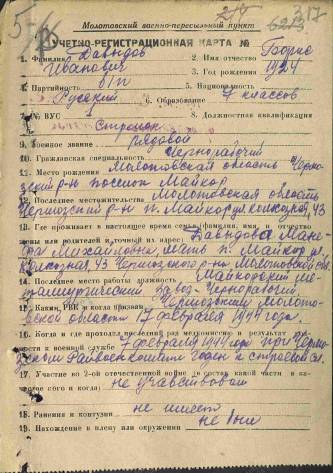 Молотовский военно-пересыльный пункт
317
УЧЕТНО-РЕГИСТРАЦИОННАЯ КАРТА №
1. Фамилия Давыдов 2. Имя отчество Борис
Иванович 3. Год рождения 1924
4. Партийность б/п 5. Национальность
Русский 6. Образование 7 классов
7. № ВУС 8. Должностная квалификация
Стрелок
9. Военное звание рядовой
10. Гражданская специальность Чернорабочий
11. Место рождения Молотовская область Чермоз
ский р-н поселок Майкор
12. Последнее местожительства Молотовская область
Чермозский р-н п. Майкор ул. Колхозная, 43
13. Где проживает в настоящее время семья (фамилия, имя, и отчество
жены или родителей и точный их адрес) Давыдова
Михайловна, мать п. Майкор ул.
Колхозная, 43 Чермозского р-на Молотовской обл.
14. Последнее место работы и должность Майкорский ме-
таллургический завод. Чернорабочий
15. Каким РВК и когда призван Чермозским Молото-
вской области 17 февраля 1944 года.
16. Когда и где проходил последний раз медкомиссию и результат
7 февраля 1944 года при Чермо-
зском Райвоенкомате годен к строевой сл.
17. Участие во 2-ой отечественной войне (в составе какой части в ка-
честве кого и когда) не участвовал
18. Ранения и контузии не имеет
19. Нахождение в плену или окружении не был